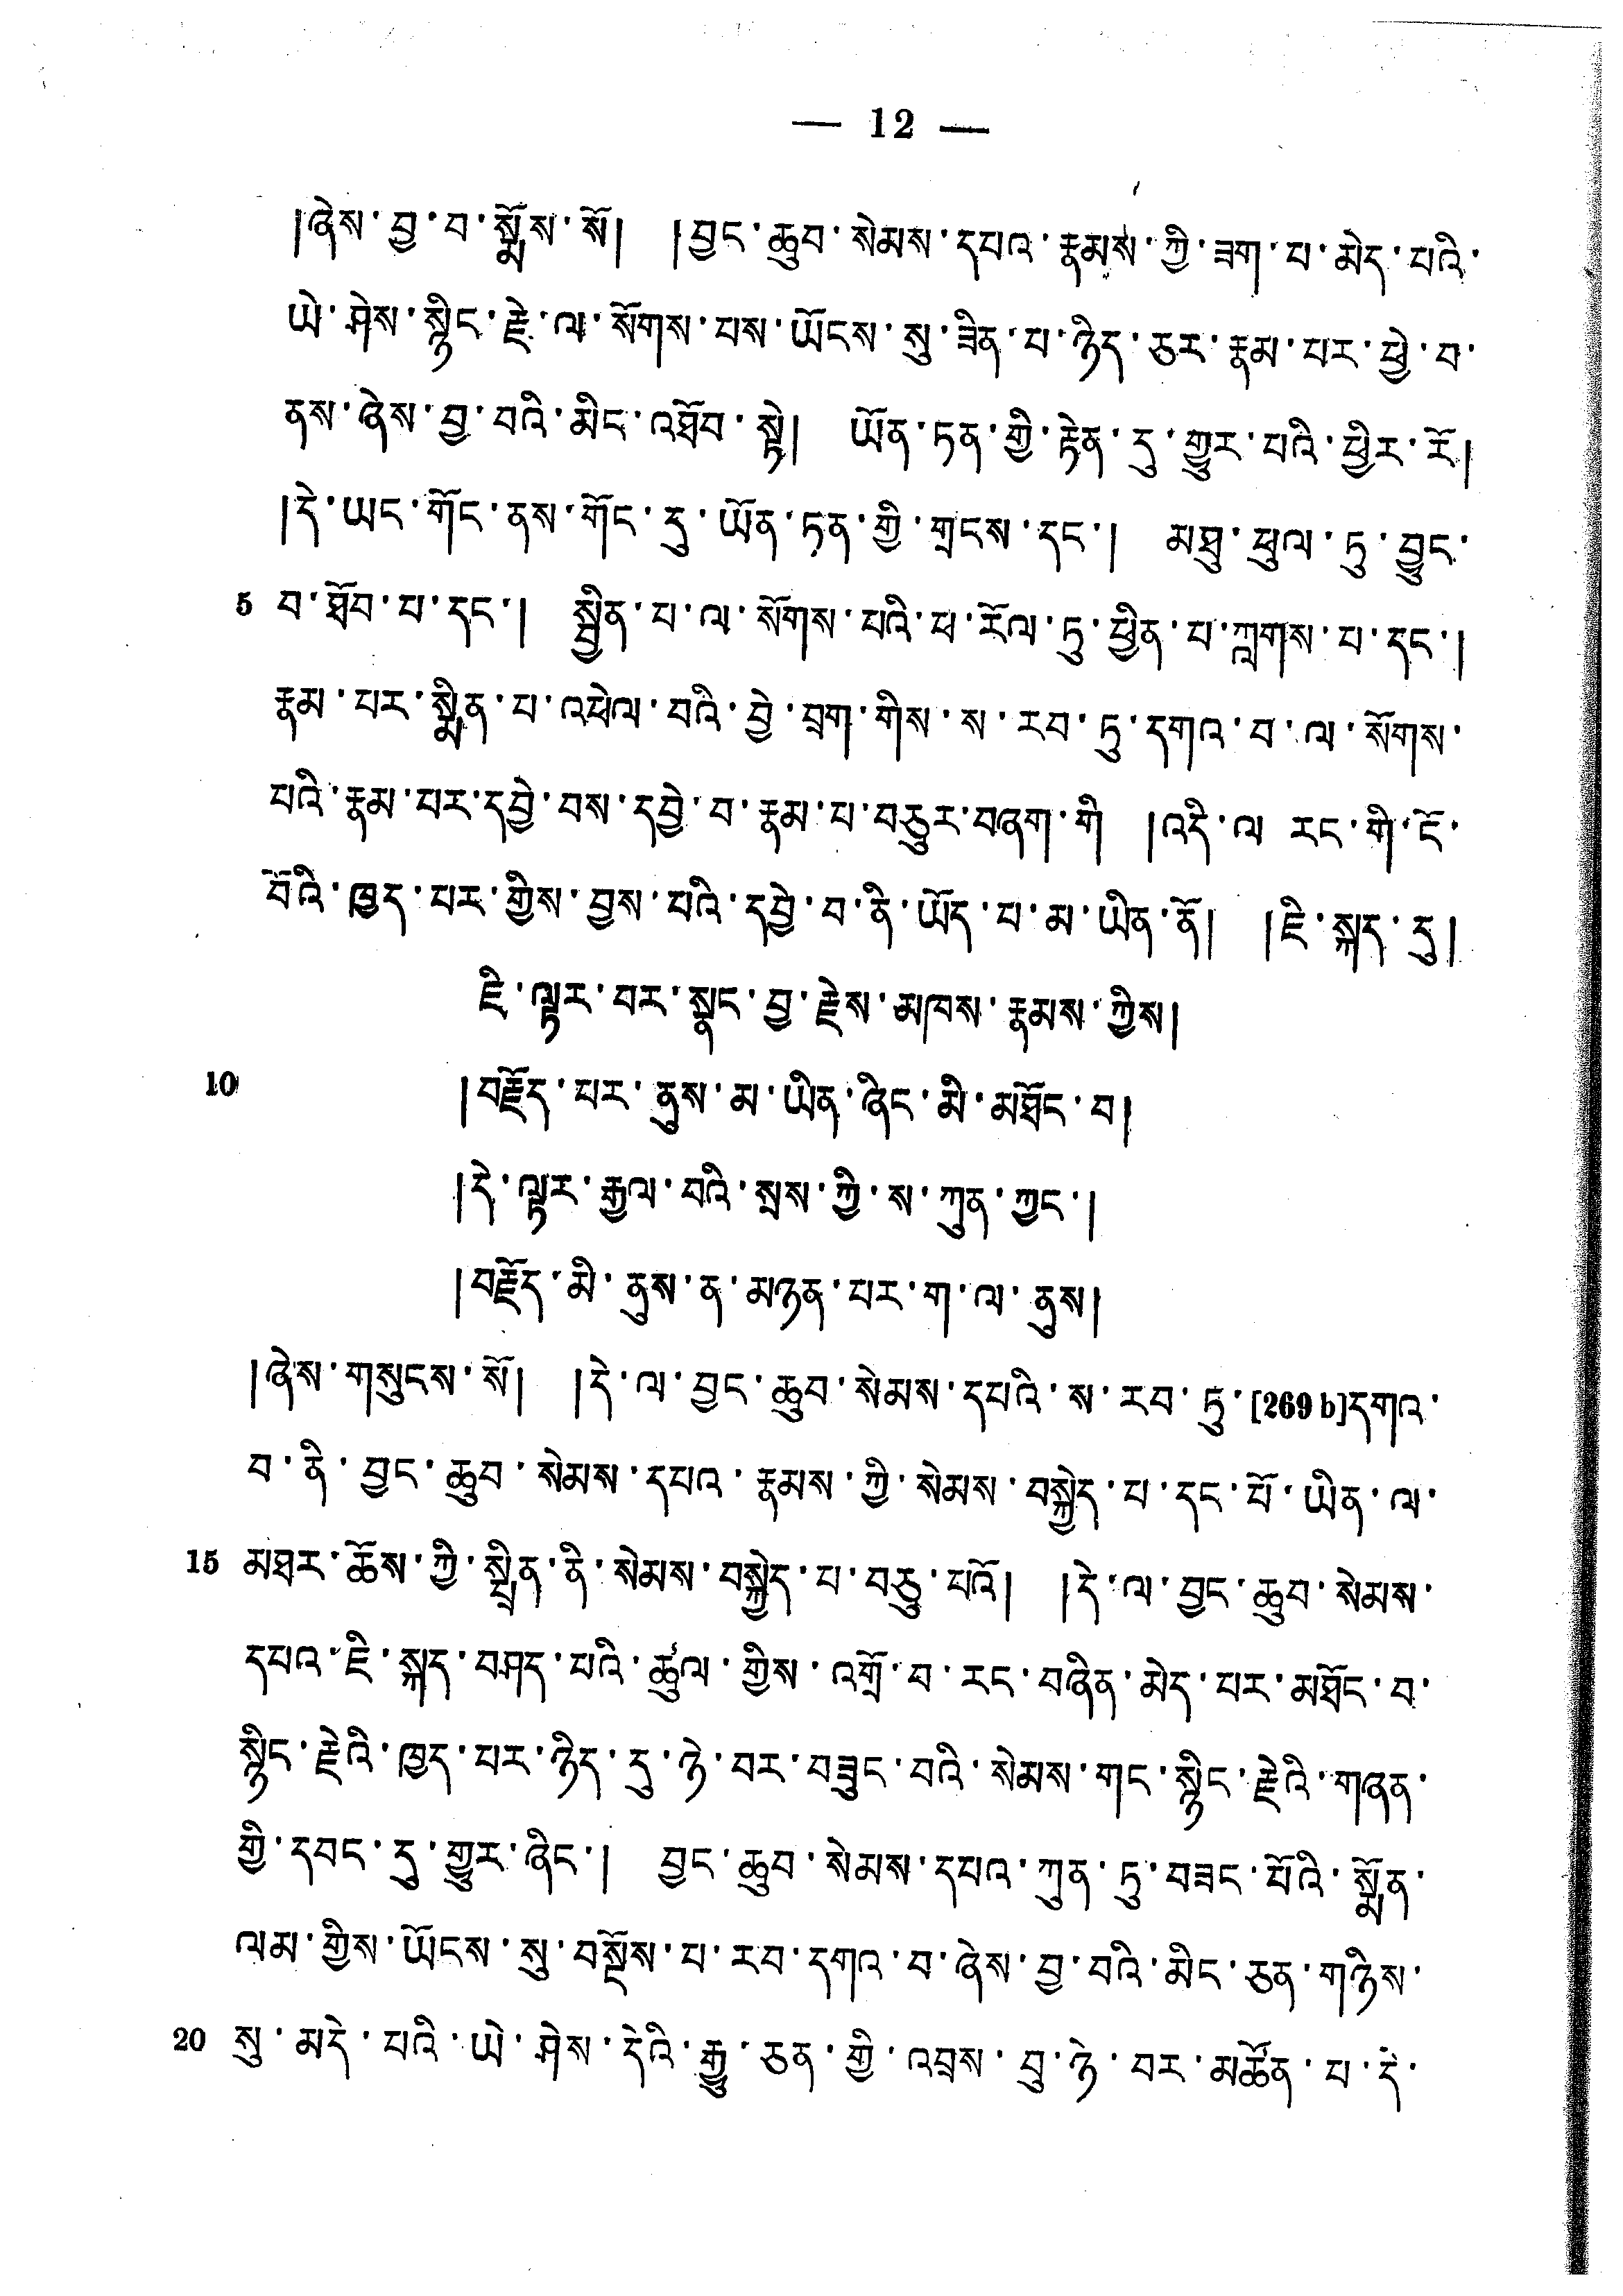 — 12 —
།ཞེས་བྱ་བ་སྨོས་སོ། །བྱང་ཆུབ་སེམས་དཔའ་རྣམས་ཀྱི་ཟག་པ་མེད་པའི་
ཡེ་ཤེས་སྙིང་རྗེ་ལ་སོགས་པས་ཡོངས་སུ་ཟིན་པ་ཉིད་ཅར་རྣམ་པར་ཕྱེ་བ་
ནས་ཞེས་བྱ་བའི་མིང་འཐོབ་སྟེ། ཡོན་ཏན་གྱི་རྟེན་དུ་གྱུར་པའི་ཕྱིར་རོ།
།དེ་ཡང་གོང་ནས་གོང་དུ་ཡོན་ཏན་གྱི་གྲངས་དང་། མཐུ་ཕུལ་ཏུ་བྱུང་
5 བ་ཐོབ་པ་དང་། སྦྱིན་པ་ལ་སོགས་པའི་ཕ་རོལ་ཏུ་ཕྱིན་པ་ཀླགས་པ་དང་།
རྣམ་པར་སྨིན་པ་འཕེལ་བའི་བྱེ་བྲག་གིས་ས་རབ་ཏུ་དགའ་བ་ལ་སོགས་
པའི་རྣམ་པར་དབྱེ་བས་དབྱེ་བ་རྣམ་པ་བཅུར་བཞག་གི །འདི་ལ རང་གི་ངོ་
བོའི་ཁྱད་པར་གྱིས་བྱས་པའི་དབྱེ་བ་ནི་ཡོད་པ་མ་ཡིན་ནོ། །ཇི་སྐད་དུ།
ཇི་ལྟར་བར་སྣང་བྱ་རྗེས་མཁས་རྣམས་ཀྱིས།
10 །བརྗོད་པར་ནུས་མ་ཡིན་ཞིང་མི་མཐོང་བ།
།དེ་ལྟར་རྒྱལ་བའི་སྲས་ཀྱི་ས་ཀུན་ཀྱང་།
།བརྗོད་མི་ནུས་ན་མཉན་པར་ག་ལ་ནུས།
།ཞེས་གསུངས་སོ། །དེ་ལ་བྱང་ཆུབ་སེམས་དཔའི་ས་རབ་ཏུ་[269 b]དགའ་
བ་ནི་བྱང་ཆུབ་སེམས་དཔའ་རྣམས་ཀྱི་སེམས་བསྐྱེད་པ་དང་པོ་ཡིན་ལ་
15 མཐར་ཆོས་ཀྱི་སྤྲིན་ནི་སེམས་བསྐྱེད་པ་བཅུ་པའོ། །དེ་ལ་བྱང་ཆུབ་སེམས་
དཔའ་ཇི་སྐད་བཤད་པའི་ཚུལ་གྱིས་འགྲོ་བ་རང་བཞིན་མེད་པར་མཐོང་བ་
སྙིང་རྗེའི་ཁྱད་པར་ཉིད་དུ་ཉེ་བར་བཟུང་བའི་སེམས་གང་སྙིང་རྗེའི་གཞན་
གྱི་དབང་དུ་གྱུར་ཞིང་། བྱང་ཆུབ་སེམས་དཔའ་ཀུན་ཏུ་བཟང་པོའི་སྨོན་
ལམ་གྱིས་ཡོངས་སུ་བསྔོས་པ་རབ་དགའ་བ་ཞེས་བྱ་བའི་མིང་ཅན་གཉིས་
20 སུ་མདེ་པའི་ཡེ་ཤེས་དེའི་རྒྱུ་ཅན་གྱི་འབྲས་བུ་ཉེ་བར་མཚོན་པ་དེ་